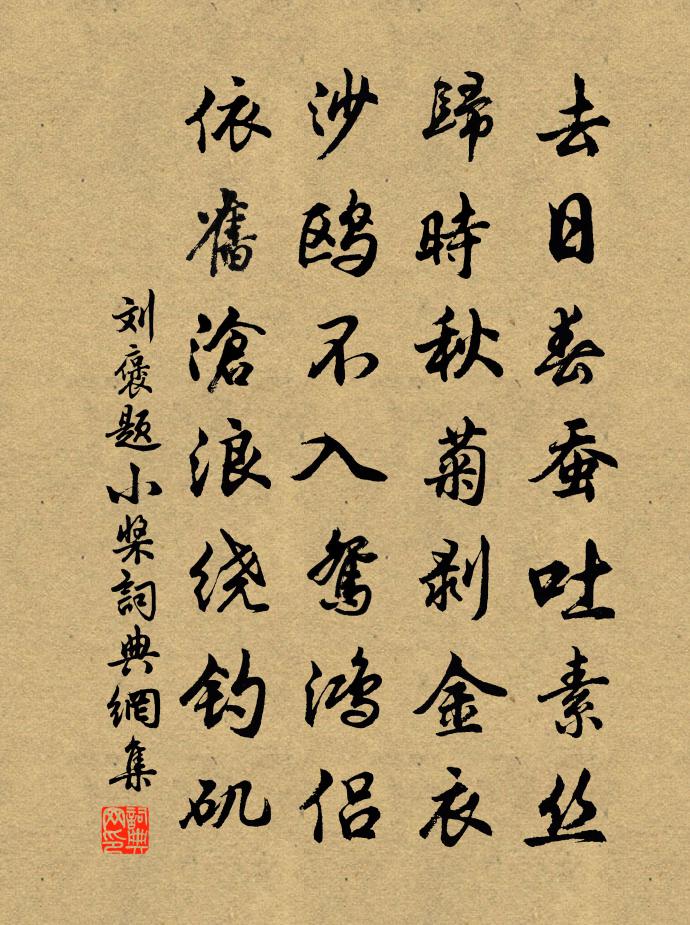 去日春蚕吐素丝
歸時秋菊剥金衣
沙鸥不入鸳鸿侣
依舊滄浪绕钓矶
刘褒题小桨詞典網集
詞典网印